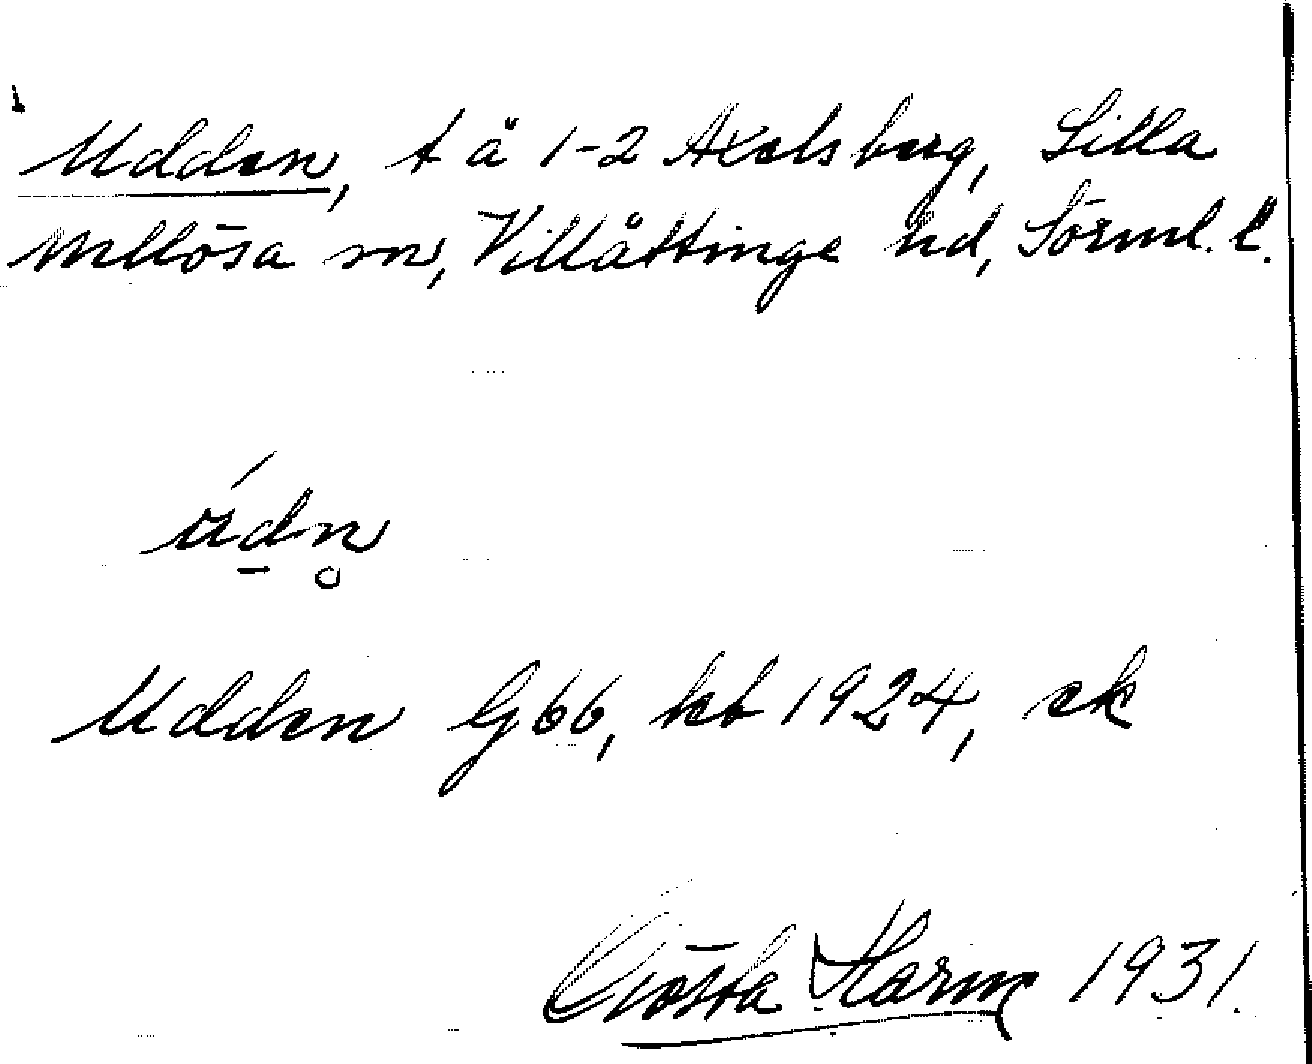 Udden, t å 1-2 Axelsberg, Lilla
Mellösa sn, Villåttinge hd, Sörml. l.
údn̥
Udden G66, kb 1924, ek
Gösta Harm 1931.